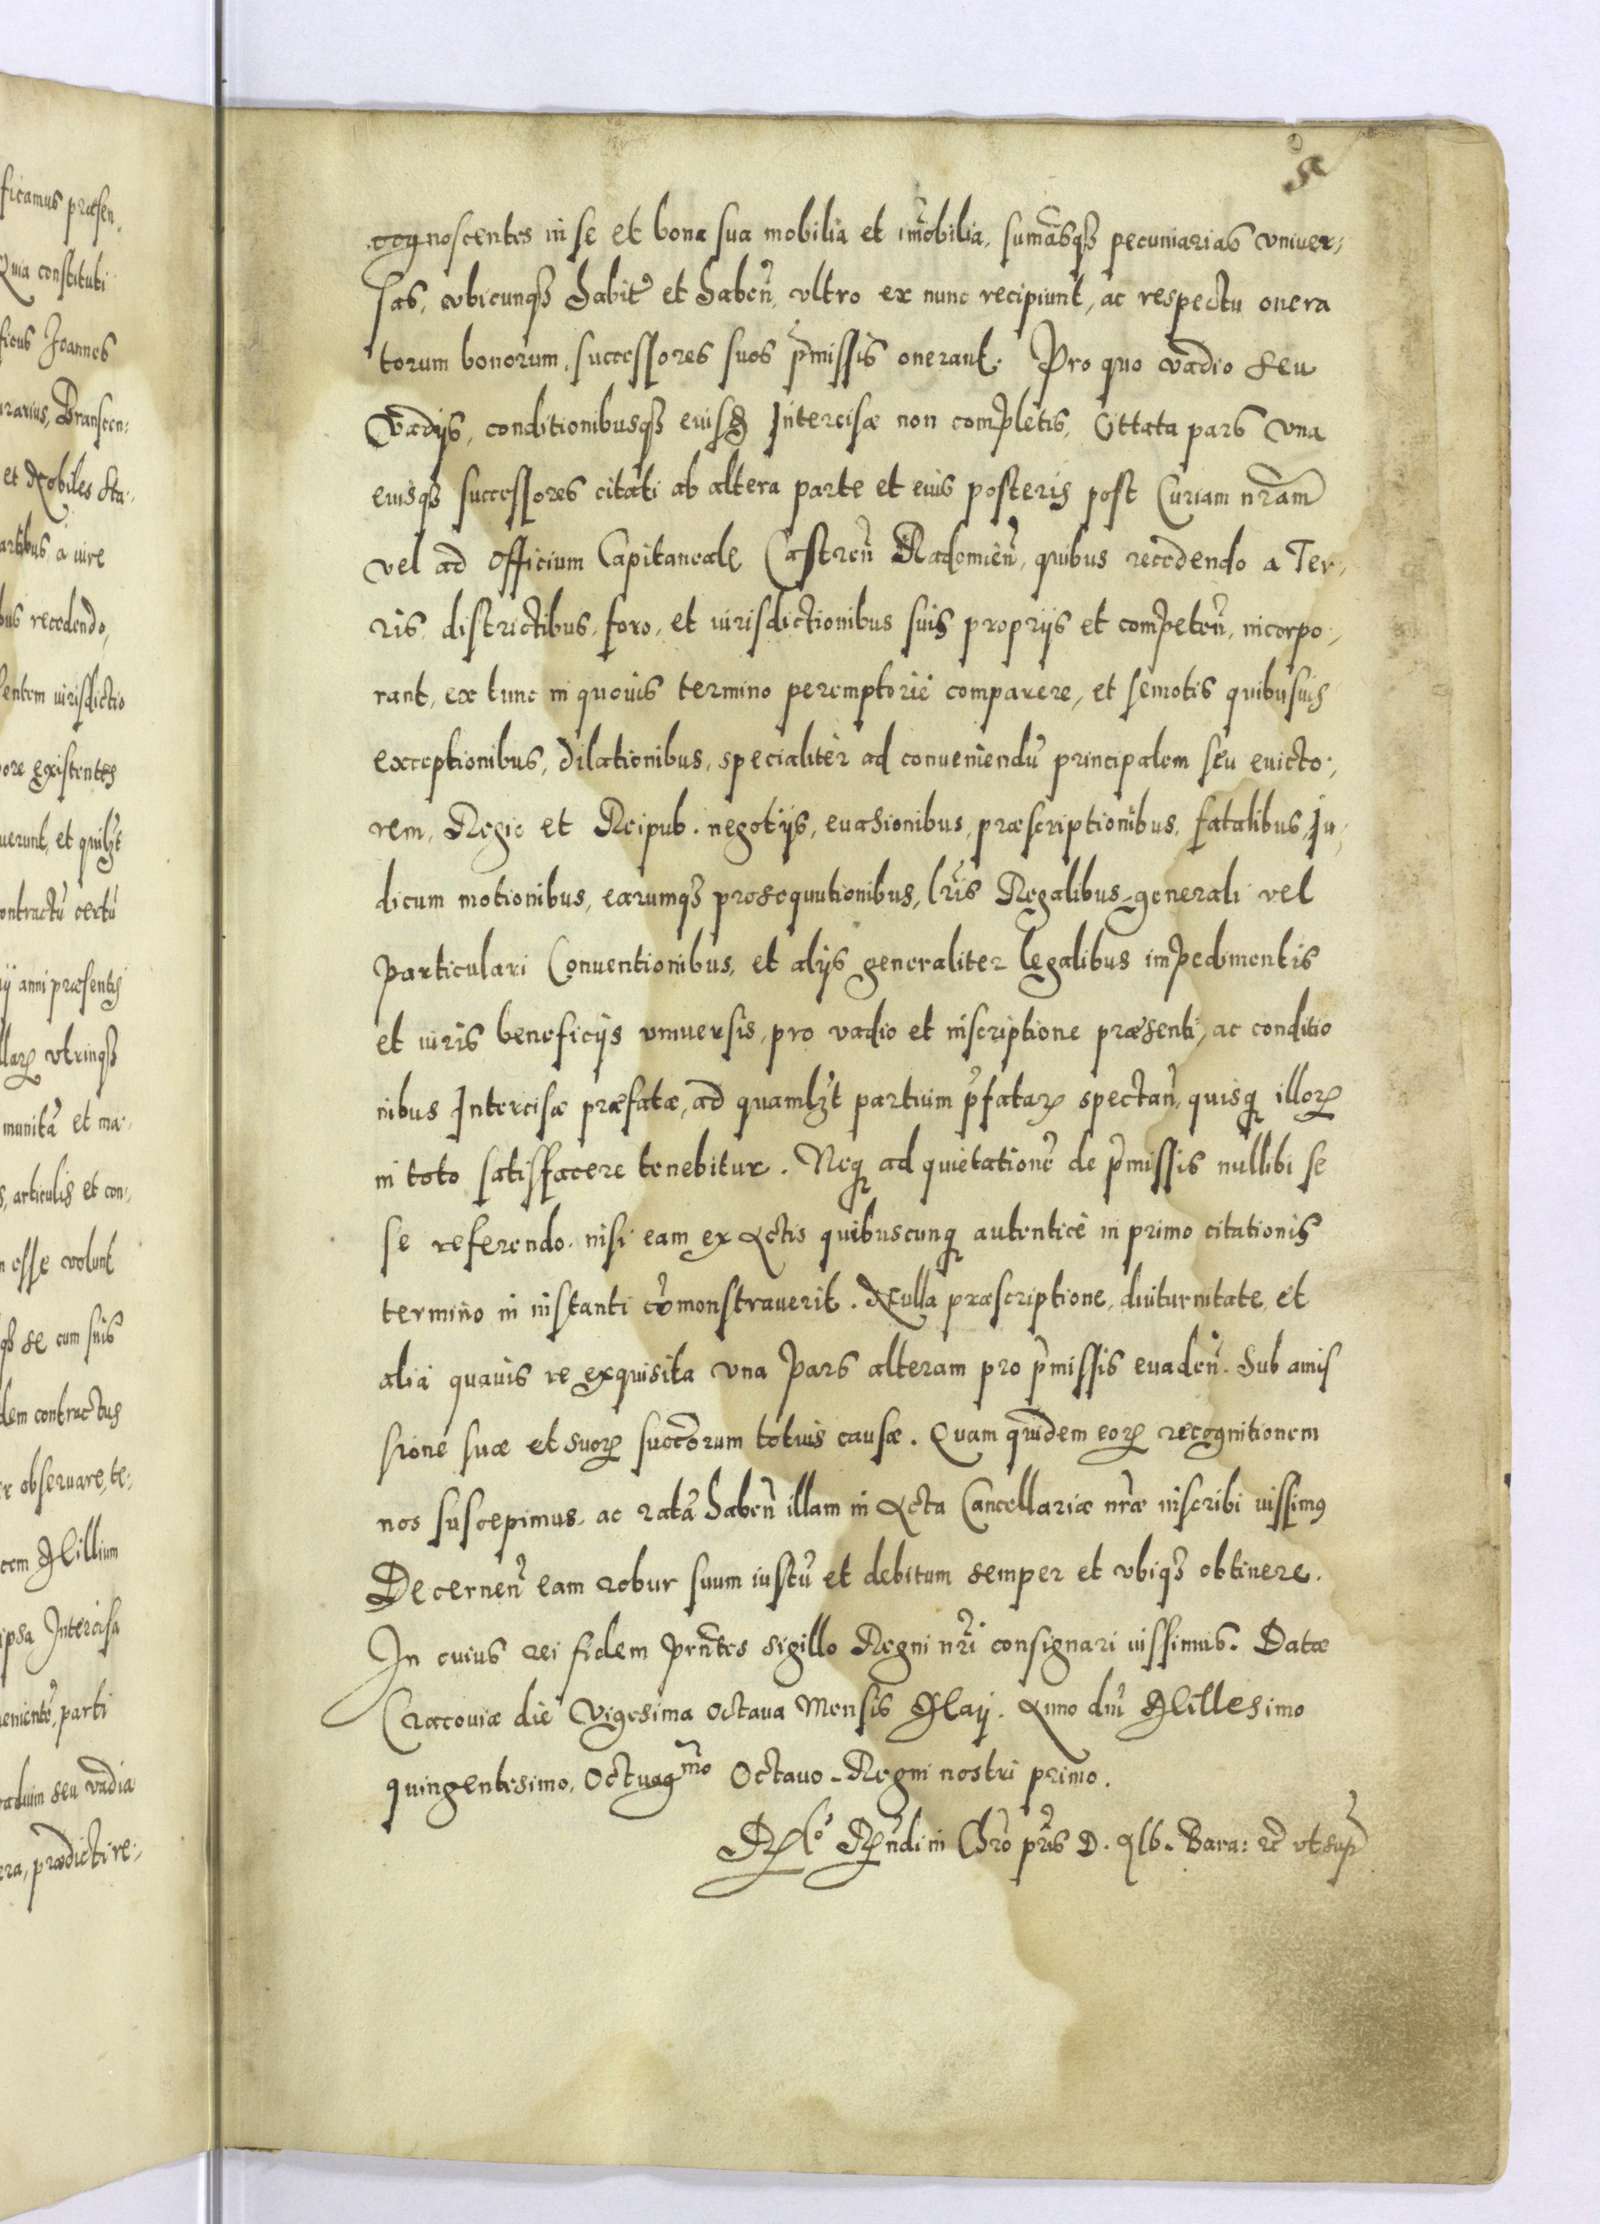 ficamus præsen,
Quia constituti
ficus Joannes
rarius, Dransen:
et Nobiles Sta,
artibus a iure
bus recedendo,
sentem iurisdictio
pore existentes
uerunt, et quilzt
contractũ certũ
ij anni præsentis
utrinqȝ
munitã et ma,
articulis et con,
esse volunt
qȝ se cum suis
dem contractus
observare, te,
Millium
ipsa Intercisa
parti
vadium seu vadia
prædicti re,
cognoscentes in se et bona sua mobilia et im̃obilia, sum̃asqȝ pecuniarias vniuer,
sas, vbicunqȝ habit᷒ et haben̄, vltro ex nunc recipiunt, ac respectu onera
torum bonorum, successores suos p̃missis onerant. Pro quo vadio seu
Vadijs, conditionibusqȝ eiusd̃ Intercisæ non completis, Cittata pars vna
eiusqȝ successores citati ab altera parte et eius posteris post Curiam nr̃am
vel ad Officium Capitaneale Castren̄ Radomien̄, quibus recedendo a Ter,
ris, districtibus, foro, et iurisdictionibus suis proprijs et competen̄, incorpo,
rant, ex tunc in quouis termino peremptorie comparere, et semotis quibusuis
exceptionibus, dilationibus, specialiter ad conueniendũ principalem seu euicto,
rem, Regis et Reipub. negotijs, euasionibus, præscriptionibus, fatalibus, Ju,
dicum motionibus, earumqȝ prosequutionibus, lr̃is Regalibus, generali vel
particulari Conuentionibus, et alijs generaliter legalibus impedimentis
et iuris beneficijs vniuersis, pro vadio et inscriptione præsenti, ac conditio
nibus Intercisæ præfatæ, ad quamlzt partium p̃fataꝝ spectan̄, quisq illoꝝ
in toto satisfacere tenebitur. Neq ad quietationẽ de p̃missis nullibi se
se referendo, nisi eam ex Actis quibuscunq autentice in primo citationis
termino in instanti com̃onstrauerit. Nulla præscriptione, diuturnitate, et
alia quauis re exquisita vna Pars alteram pro p̃missis euaden̄. Sub amis
sione suæ et suoꝝ succ̃orum totius causæ. Quam quidem eoꝝ recognitionem
nos suscepimus, ac ratã haben̄ illam in Acta Cancellariæ nr̃æ inscribi iussimus
Decernen̄ eam robur suum iustũ et debitum semper et vbiqȝ obtinere.
In cuius rei fidem pr̃ntes sigillo Regni nr̃i consignari iussimus. Datæ
Cracouiæ die Vigesima Octaua Mensis Maij. Anno dni Millesimo
quingentesimo, Octuagmo Octauo. Regni nostri primo.
R̃ndi in Chr̃o pr̃is D. Alb. Bara: rc̃ vt sup̃